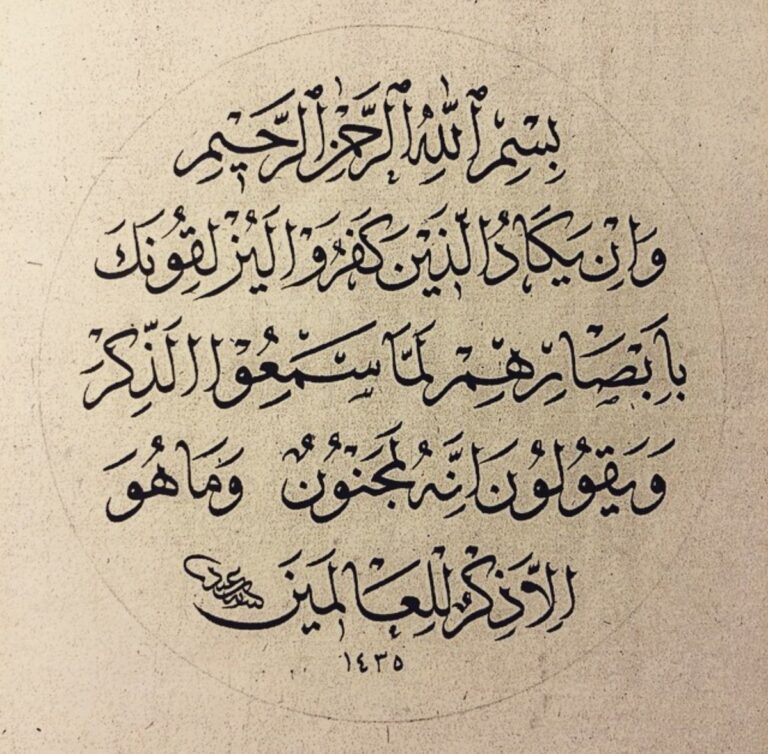 بِسْمِ ٱللهِ ٱلرَّحْمٰنِ ٱلرَّحِيمِ
وَاِنْ يَكَادُ الَّذِينَ كَفَرُوا لَيُزْلِقُونَكَ
بِاَبْصَارِهِمْ لَمَّا سَمِعُوا الذِّكْرَ
وَيَقُولُونَ اِنَّهُ لَمَجْنُونٌ وَمَا هُوَ
اِلَّا ذِكْرٌ لِلْعَالَمِينَ
١٤٣٥